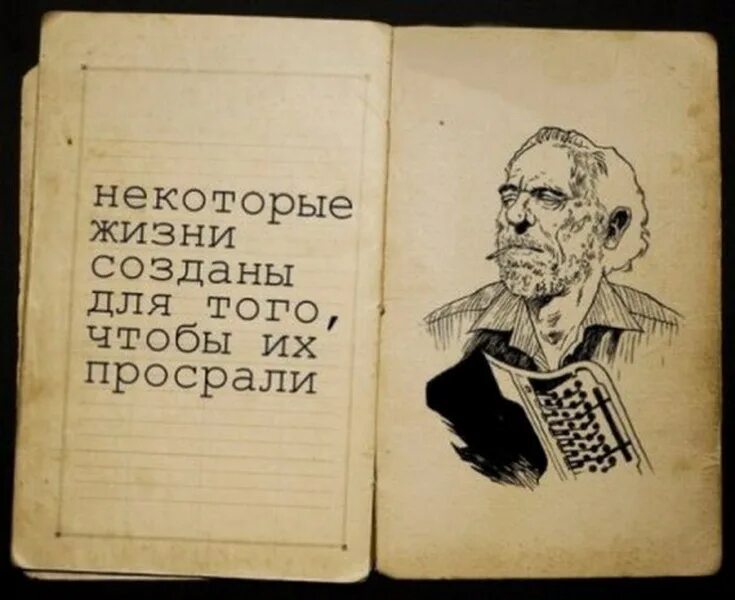 некоторые
жизни
созданы
для того,
чтобы их
просрали